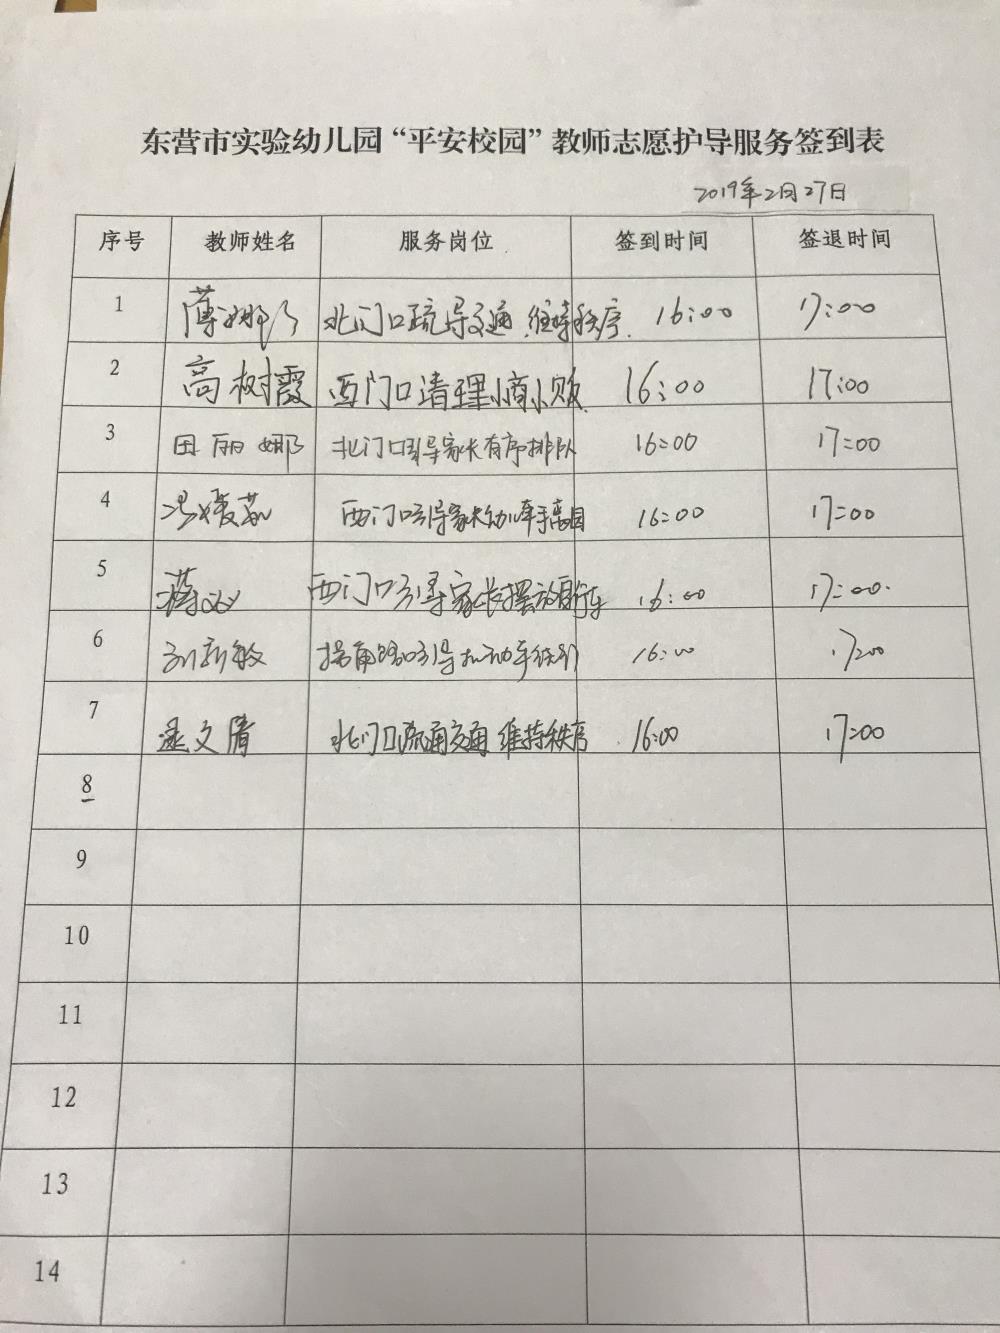 东营市实验幼儿园“平安校园”教师志愿护导服务签到表
2019年2月27日
序号 教师姓名 服务岗位 签到时间 签退时间
1 薄娜娜 北门口疏导交通 维持秩序 16:00 17:00
2 高树霞 西门口清理小商小贩 16:00 17:00
3 田丽娜 北门口引导家长有序排队 16:00 17:00
4 西门口引导家长幼儿牵手离园 16:00 17:00
5 西门口引导家长摆放自行车 16:00 17:00
6 刘新敏 拐角路口引导机动车 16:00 17:00
7 文清 北门口疏通交通 维持秩序 16:00 17:00
8
9
10
11
12
13
14